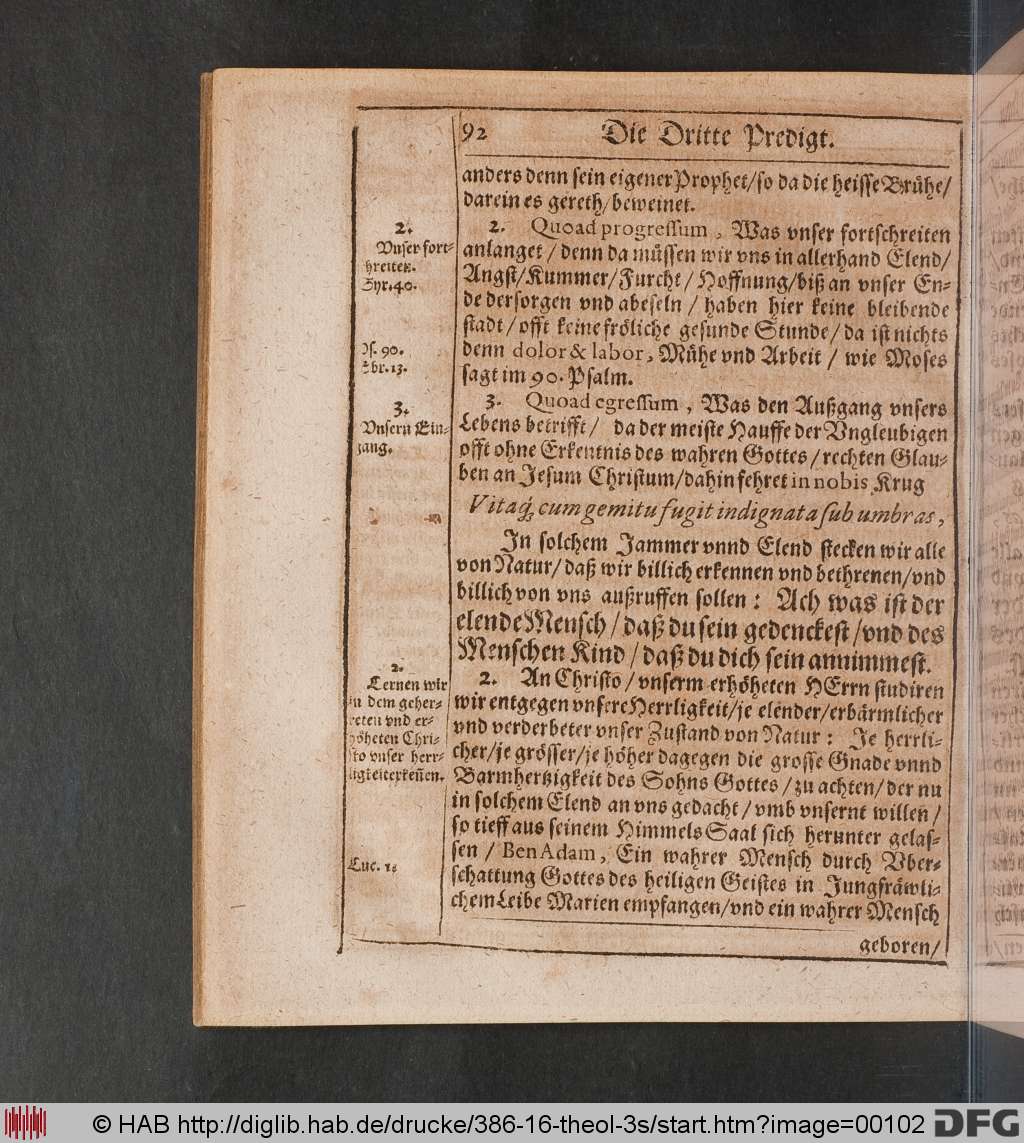 92 Die Dritte Predigt.
anders denn sein eigener Prophet/so da die heisse Brühe/
darein es gereth/beweinet.
2. Quoad progressum, Was vnser fortschreiten
anlanget / denn da müssen wir vns in allerhand Elend/
Angst/Kummer/Furcht/Hoffnung/biß an vnser En-
de dersorgen vnd abeseln / haben hier keine bleibende
stadt/offt keine fröliche gesunde Stunde/da ist nichts
denn dolor & labor, Mühe vnd Arbeit / wie Moses
sagt im 90. Psalm.
3. Quoad egressum, Was den Außgang vnsers
Lebens betrifft/ da der meiste Hauffe der Vngleubigen
offt ohne Erkentnis des wahren Gottes/rechten Glau-
ben an Jesum Christum/dahin fehret in nobis Krug
Vitaq́; cum gemitu fugit indignata sub umbras,
In solchem Jammer vnnd Elend stecken wir alle
von Natur/daß wir billich erkennen vnd bethrenen/vnd
billich von vns außruffen sollen: Ach was ist der
elende Mensch/daß du sein gedenckest/vnd des
Menschen Kind/daß du dich sein annimmest.
2. An Christo/vnserm erhöheten HErrn studiren
wir entgegen vnsere Herrligkeit/je elender/erbärmlicher
vnd verderbeter vnser Zustand von Natur: Je herrli-
cher/je grösser/je höher dagegen die grosse Gnade vnnd
Barmhertzigkeit des Sohns Gottes/zu achten/der nu
in solchem Elend an vns gedacht/vmb vnsernt willen/
so tieff aus seinem HimmelsSaal sich herunter gelas-
sen / Ben Adam, Ein wahrer Mensch durch Vber-
schattung Gottes des heiligen Geistes in Jungfräwli-
chem Leibe Marien empfangen/vnd ein wahrer Mensch
geboren/
2.
Vnser fort-
hreiten.
Syr. 40.
Ps. 90.
Ebr. 13.
3.
Vnsern Ein-
gang.
2.
Lernen wir
in dem geher-
reten vnd er-
höheten Chri-
sto vnser herr-
ligkeit erkeñen.
Luc. 1.
© HAB http://diglib.hab.de/drucke/386-16-theol-3s/start.htm?image=00102
DFG